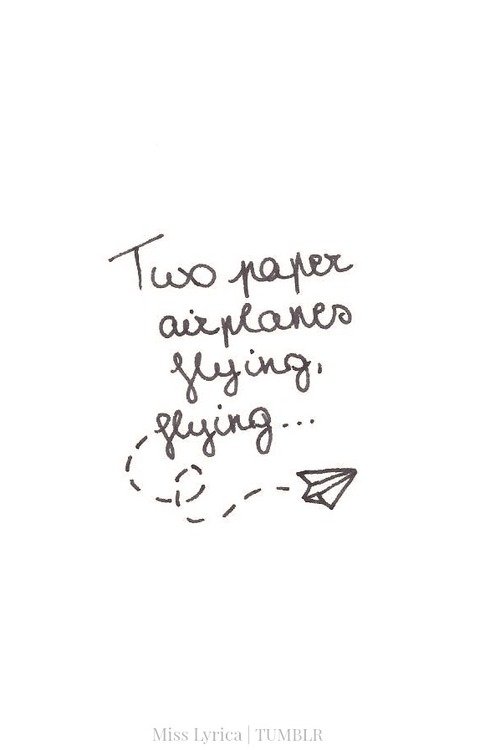 Two paper
airplanes
flying,
flying...
Miss Lyrica | TUMBLR